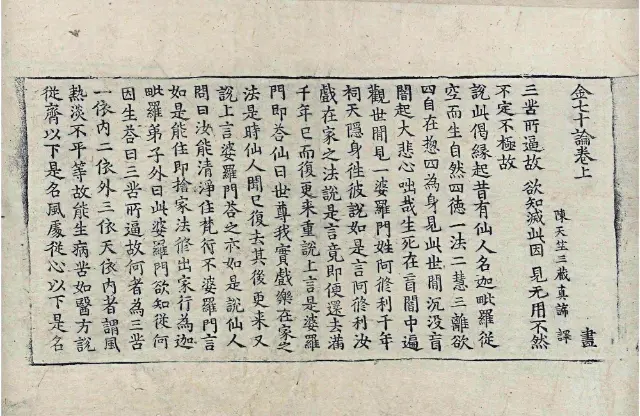 金七十論卷上
陳天竺三藏真諦 譯 晝
三苦所逼故 欲知滅此因 見无用不然
不定不極故
說此偈縁起昔有仙人名迦毗羅從
空而生自然四徳一法二慧三離欲
四自在揔四為身見此世間沉没盲
闇起大悲心咄哉生死在盲闇中遍
觀世間見一婆羅門姓阿脩利千年
祠天隱身徃彼說如是言阿脩利汝
戲在家之法說是言竟即便還去滿
千年已而復更来重說上言是婆羅
門即荅仙曰世尊我實戲樂在家之
法是時仙人聞已復去其後更来又
說上言婆羅門荅之亦如是說仙人
問曰汝能清淨住梵行不婆羅門言
如是能住即捨家法修出家行為迦
毗羅弟子外曰此婆羅門欲知從何
因生荅曰三苦所逼故何者為三苦
一依内二依外三依天依内者謂風
熱淡不平等故能生病苦如醫方說
從齊以下是名風處從心以下是名